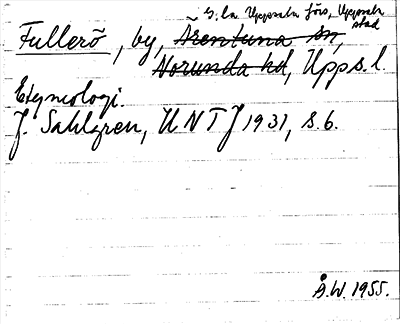 G:la Uppsala förs, Uppsala
stad
Fullerö, by, Ärentuna sn,
Norunda hd, Upps.l.
Etymologi.
J. Sahlgren, UNTJ 1931, s.6.
Å.W. 1955.